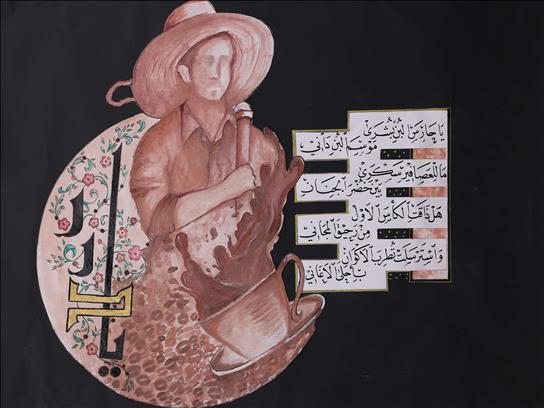 يَا حَارِسَ البُنِّ بُشْرَى
مَوْسِمُ البُنِّ دَانِي
مَا لِلْعَصَافِيرِ سَكْرَى
بَيْنَ خُضْرِ الجِنَانِ
هَلْ ذَاقَتِ الكَأْسَ الأوَّلَ
مِنْ رَحِيقِ المَجَانِي
وَاسْتَرْسَلَتْ تُطْرِبُ الاكْوَانَ
بِأَحْلَى الاغَانِي